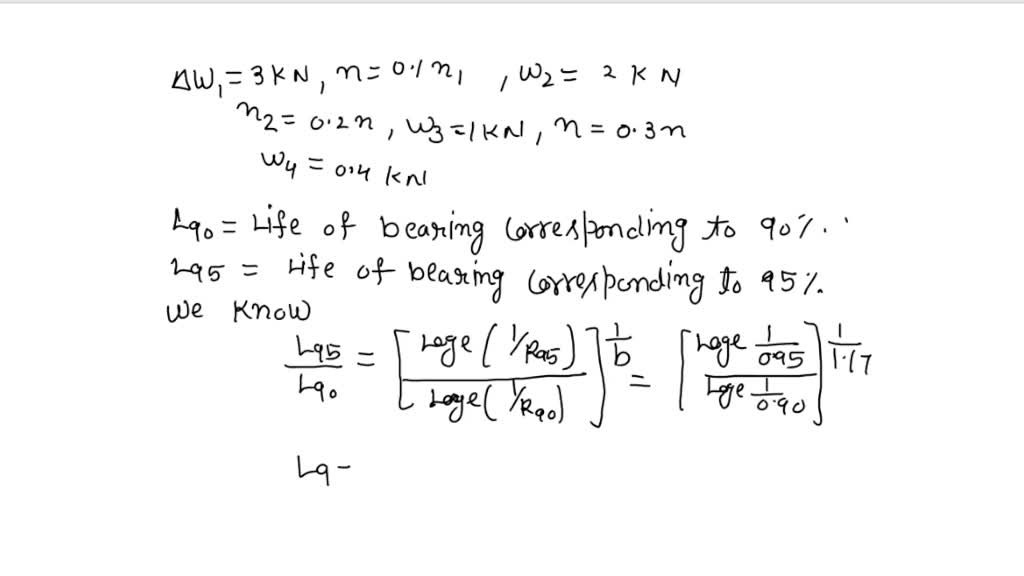 ΔW₁ = 3 KN, n = 0.1 n₁ , W₂ = 2 K N
n₂ = 0.2n , W₃ = 1 KN , n = 0.3n
W₄ = 0.4 KN
L90 = Life of bearing Corresponding to 90%.
L95 = Life of bearing Corresponding to 95%.
We Know
L95/L90 = [Loge(1/R95)/Loge(1/R90)]^(1/b) = [Loge 1/0.95 / Loge 1/0.90]^(1/1.17)
L9 -